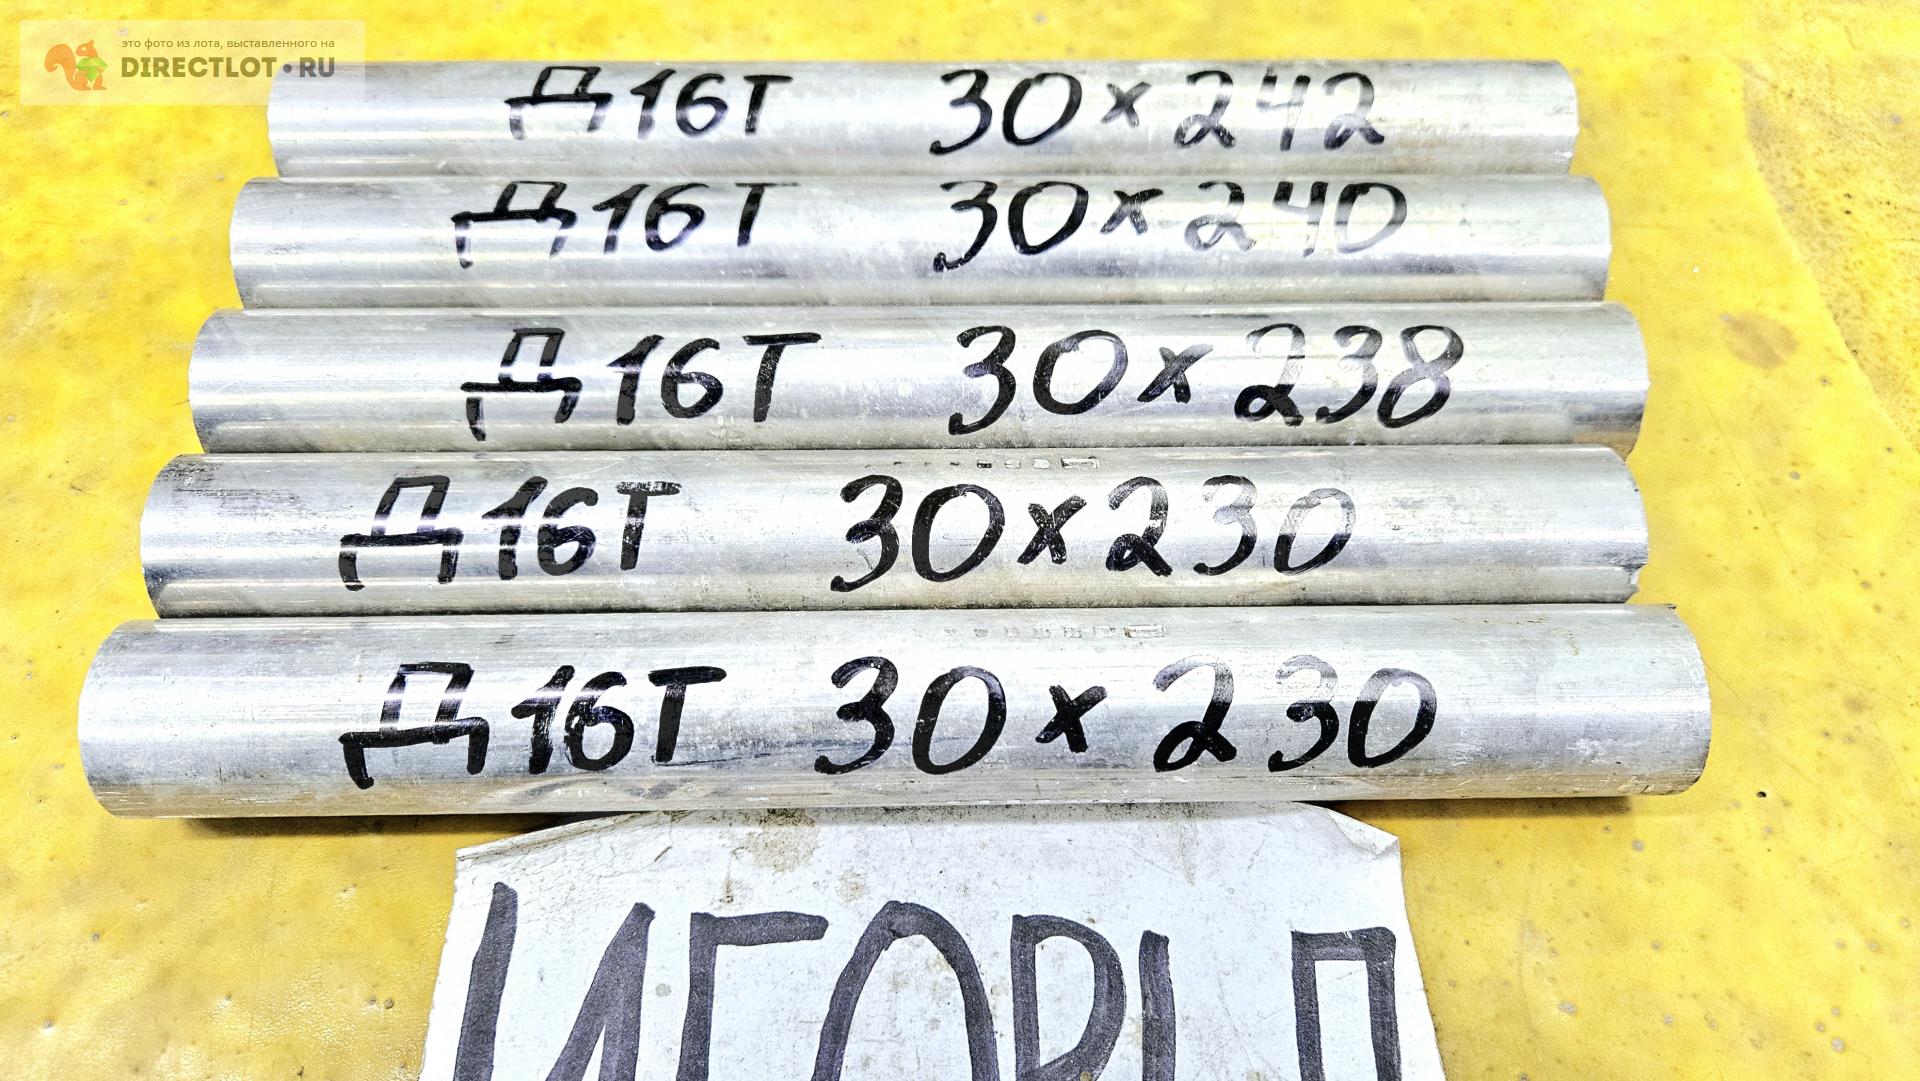 это фото из лота, выставленного на
DIRECTLOT•RU
Д16Т 30×242
Д16Т 30×240
Д16Т 30×238
Д16Т 30×230
Д16Т 30×230